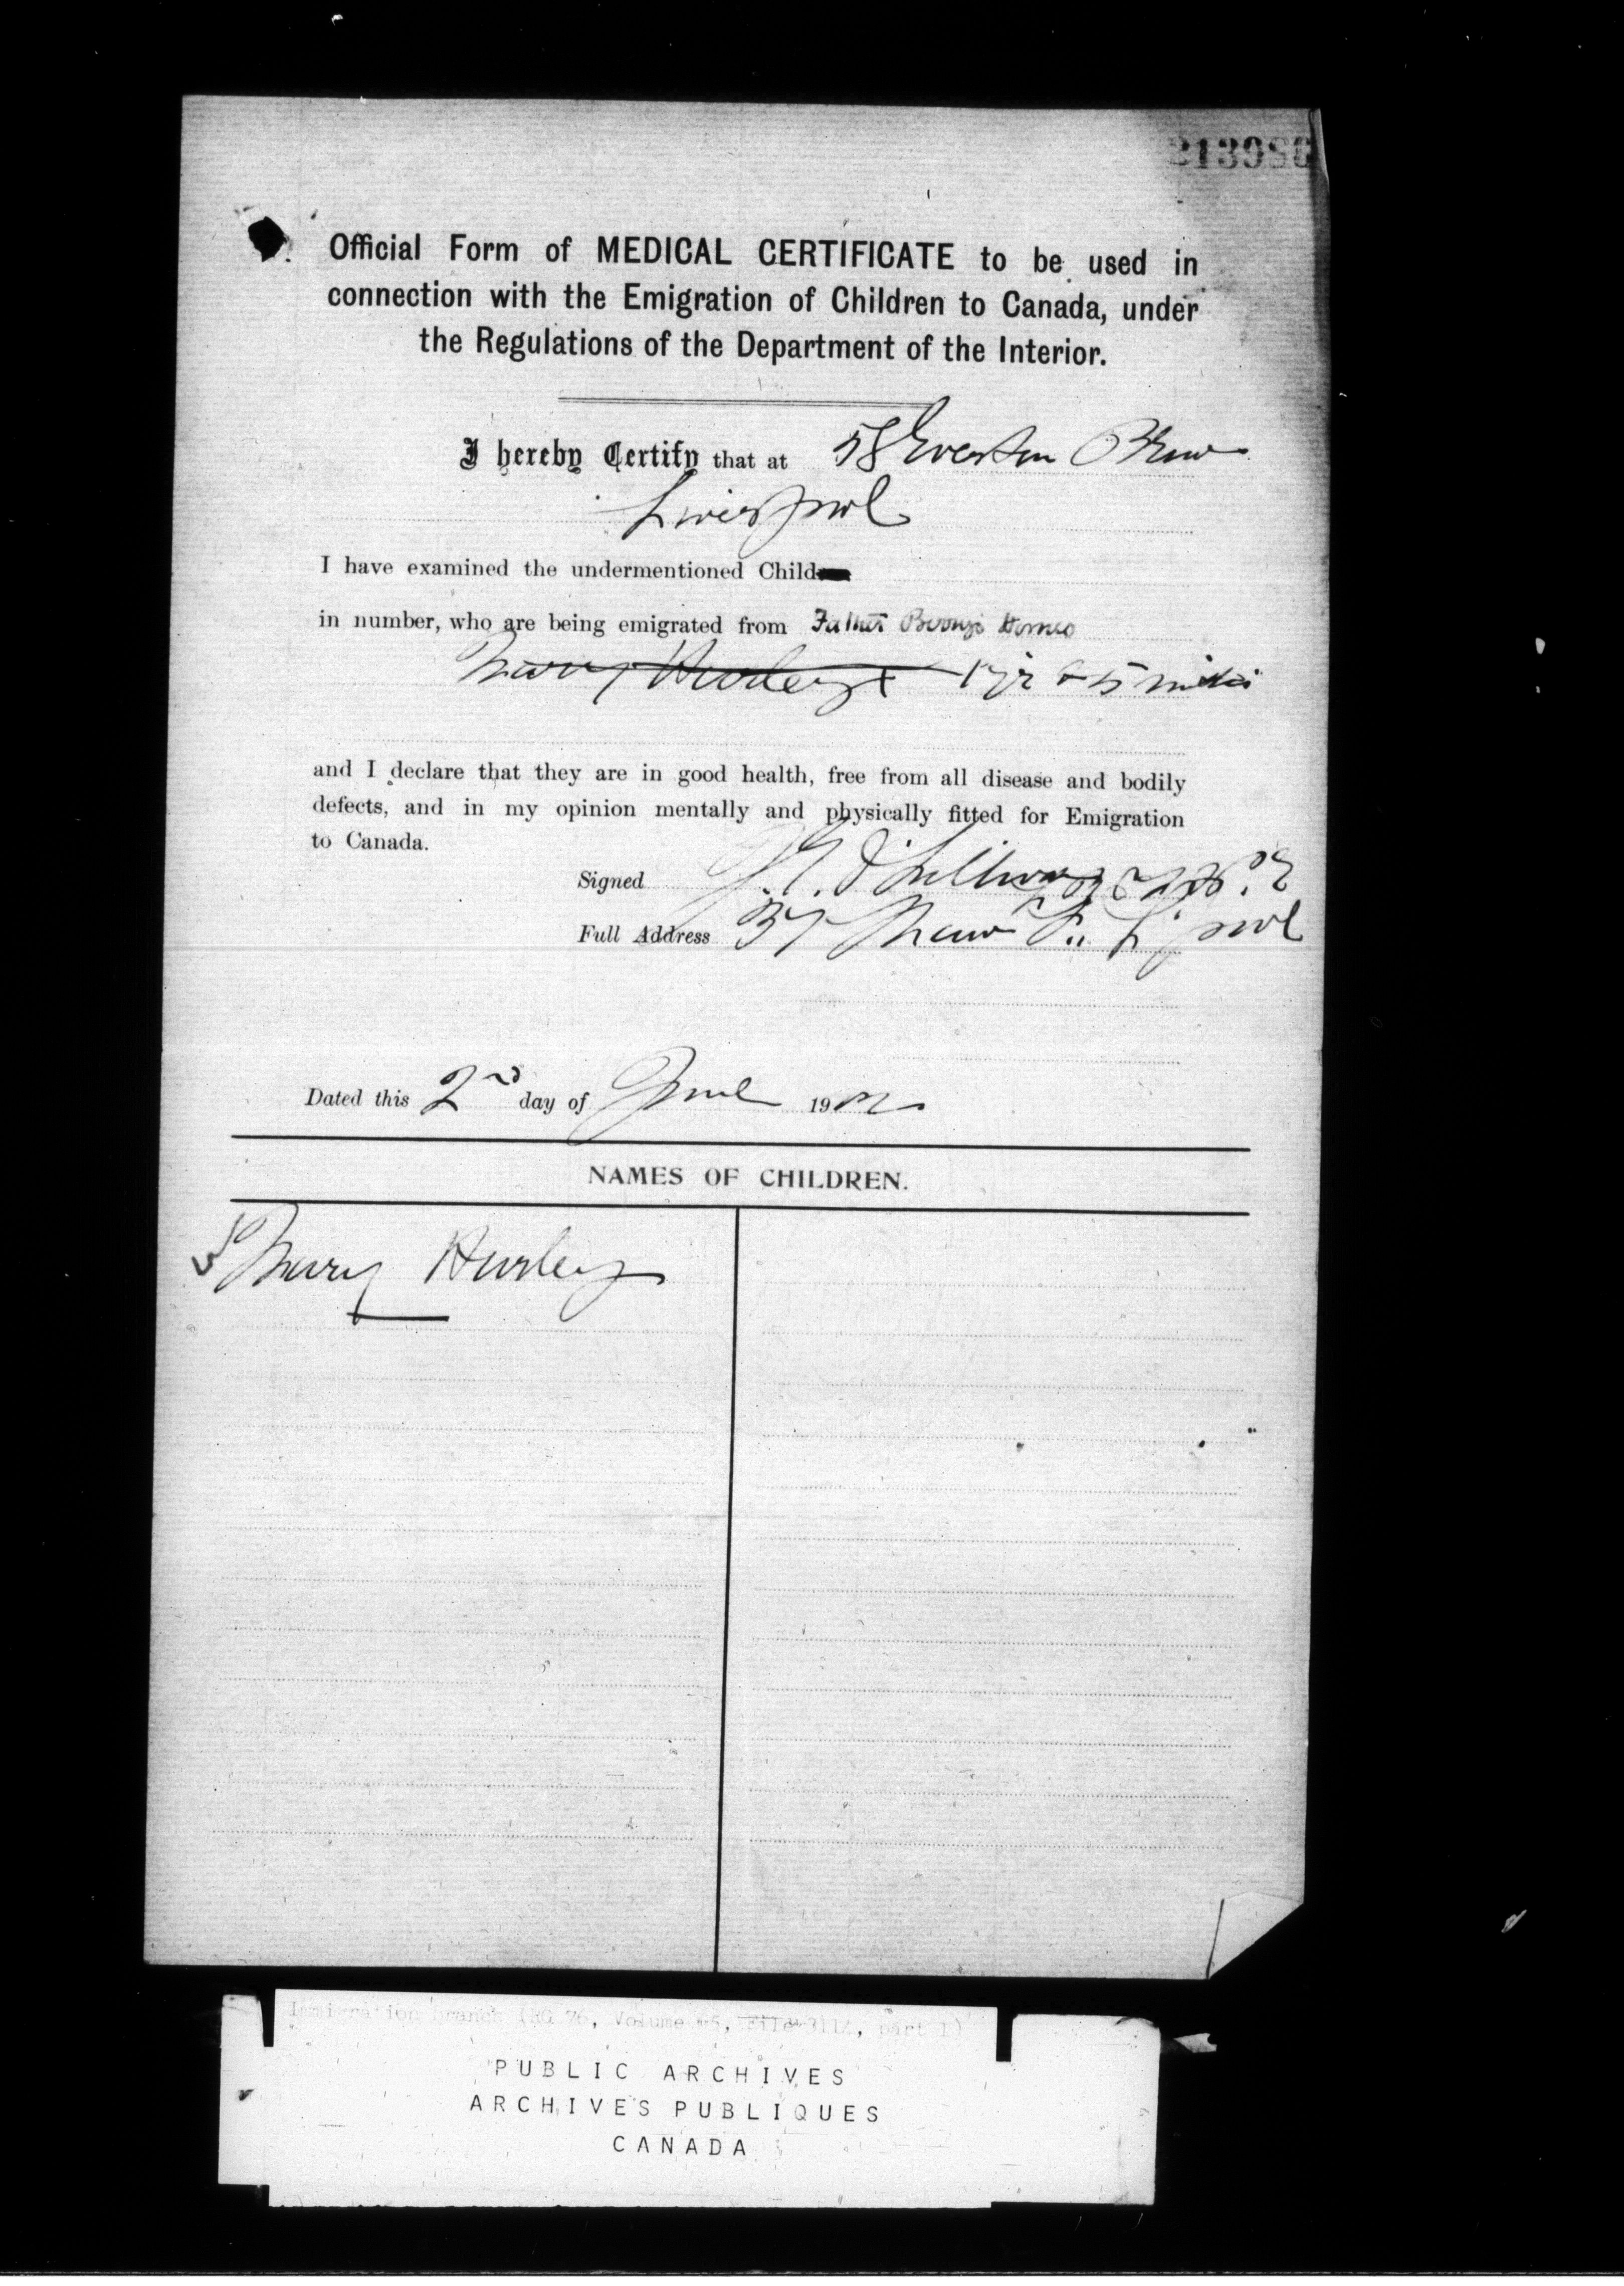 Official Form of MEDICAL CERTIFICATE to be used in
connection with the Emigration of Children to Canada, under
the Regulations of the Department of the Interior.
I hereby Certify that at 58 Everton Brow
Liverpool
I have examined the undermentioned Child
in number, who are being emigrated from Father Berry's Homes
Mary Hurley 1 yr & 5 mths
and I declare that they are in good health, free from all disease and bodily
defects, and in my opinion mentally and physically fitted for Emigration
to Canada.
Signed O'Sullivan
Full Address 37 Shaw St. L'pool
Dated this 2nd day of June 19
NAMES OF CHILDREN.
Mary Hurley
Immigration branch (RG 76, Volume 65, File 3112, part 1)
PUBLIC ARCHIVES
ARCHIVES PUBLIQUES
CANADA